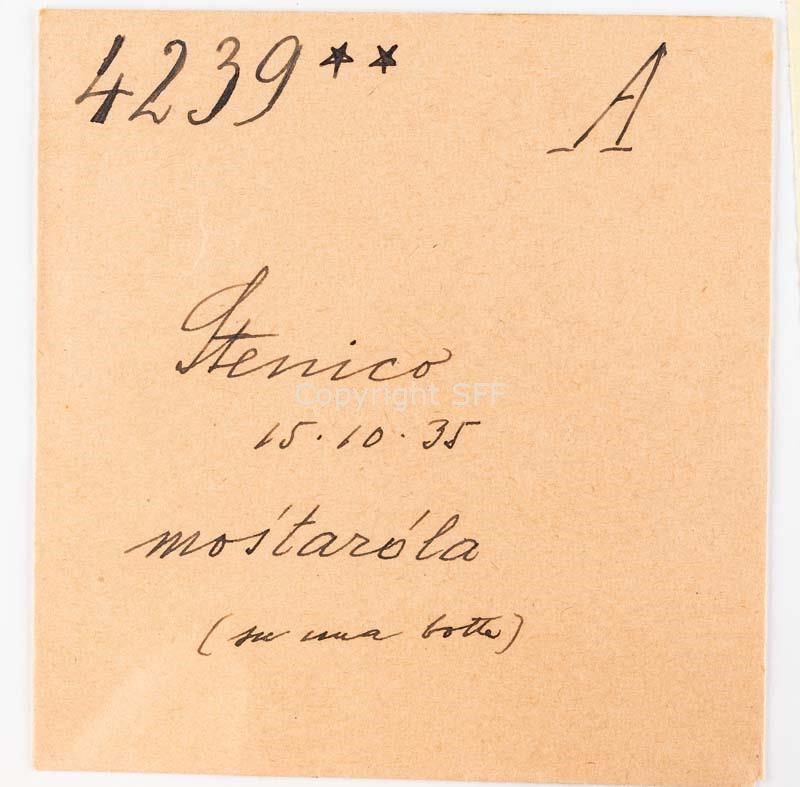 4239** A
Stenico
Copyright SFF
15.10.35
mośtaróla
(su una botte)